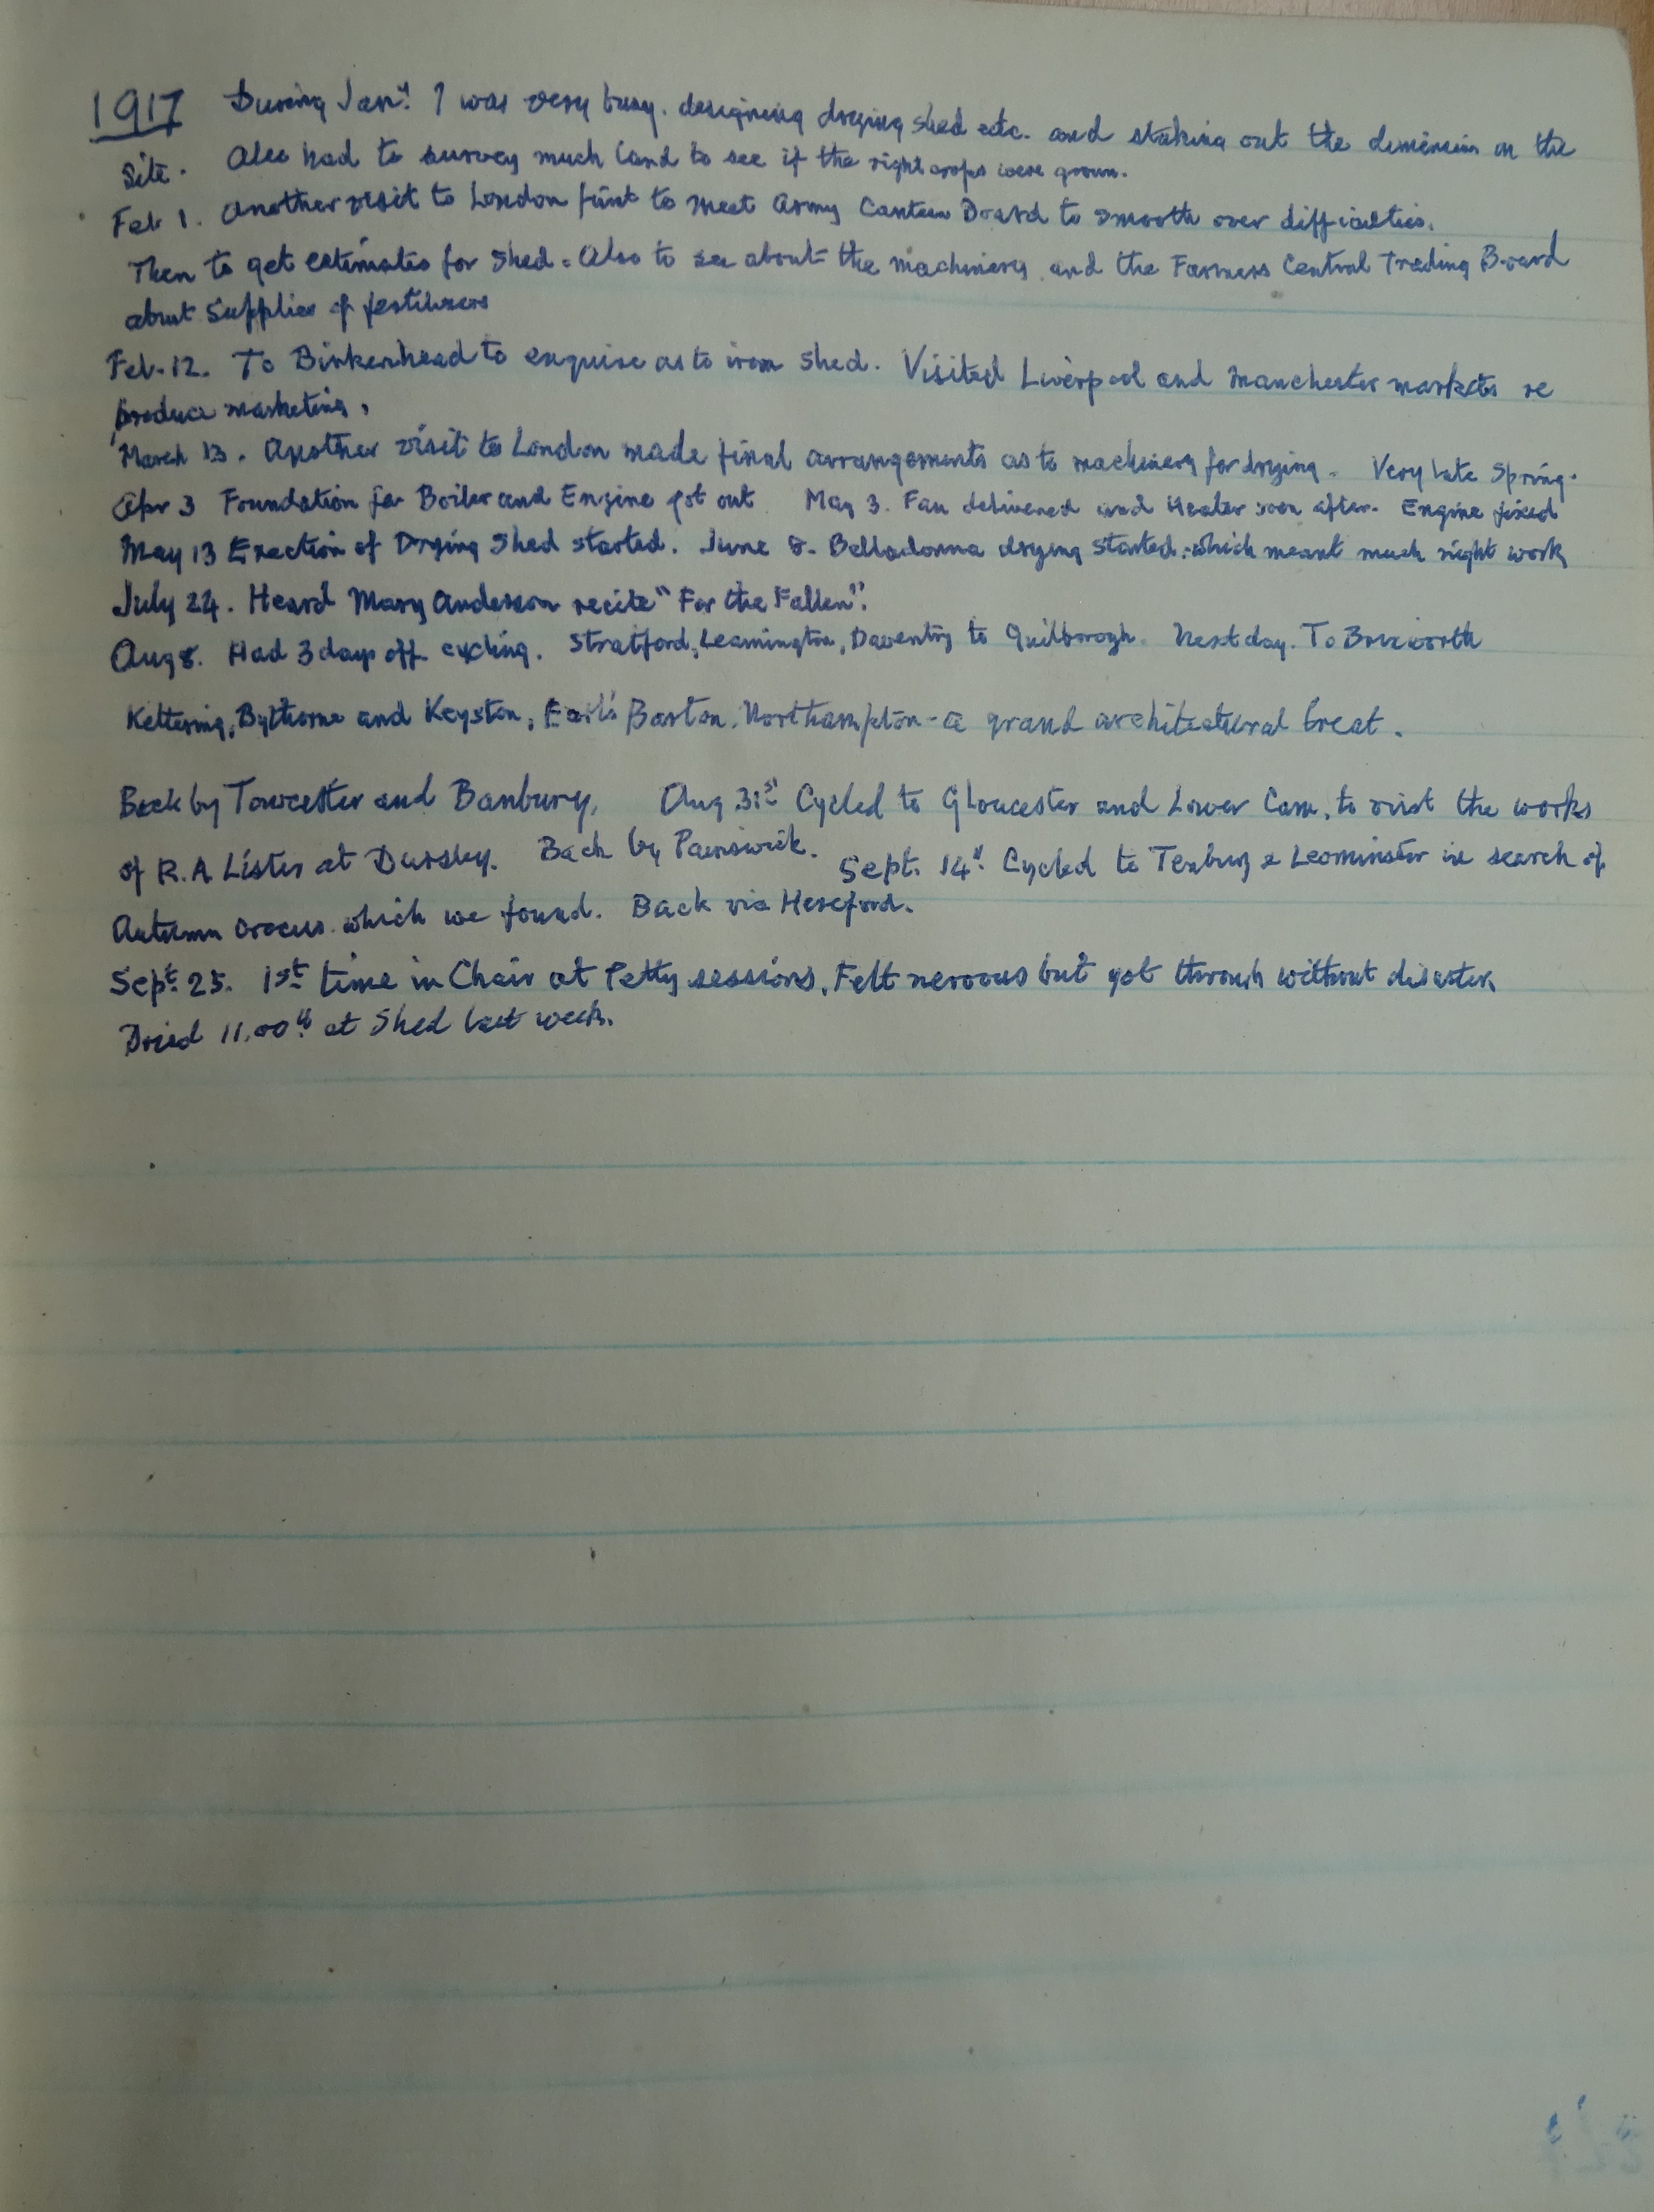 1917 During Jany. I was very busy. designing drying shed etc. and staking out the dimension on the
Site. Also had to survey much land to see if the right crops were grown.
Feb 1. Another visit to London first to meet Army Canteen Board to smooth over difficulties.
Then to get estimates for shed. Also to see about the machinery and the Farmers Central Trading Board
about Supplies of fertilizers
Feb. 12. To Birkenhead to enquire as to iron shed. Visited Liverpool and Manchester markets re
produce marketing.
March 13. Another visit to London made final arrangements as to machinery for drying. Very late Spring.
Apr 3 Foundation for Boiler and Engine got out May 3. Fan delivered and Heater soon after. Engine fixed
May 13 Erection of Drying Shed started. June 8. Belladonna drying started, which meant much night work
July 24. Heard Mary Anderson recite "For the Fallen".
Aug 8. Had 3 days off cycling. Stratford, Leamington, Daventry to Guilborogh. Next day. To Brixworth
Kettering, Bythorne and Keyston, Earl's Barton, Northampton - a grand architectural treat.
Back by Towcester and Banbury. Aug 31st Cycled to Gloucester and Lower Cam, to visit the works
of R.A Lister at Dursley. Back by Painswick. Sept. 14th Cycled to Tenbury & Leominster in search of
Autumn crocus which we found. Back via Hereford.
Sept. 25. 1st time in Chair at Petty sessions. Felt nervous but got through without disaster.
Dried at Shed last week.